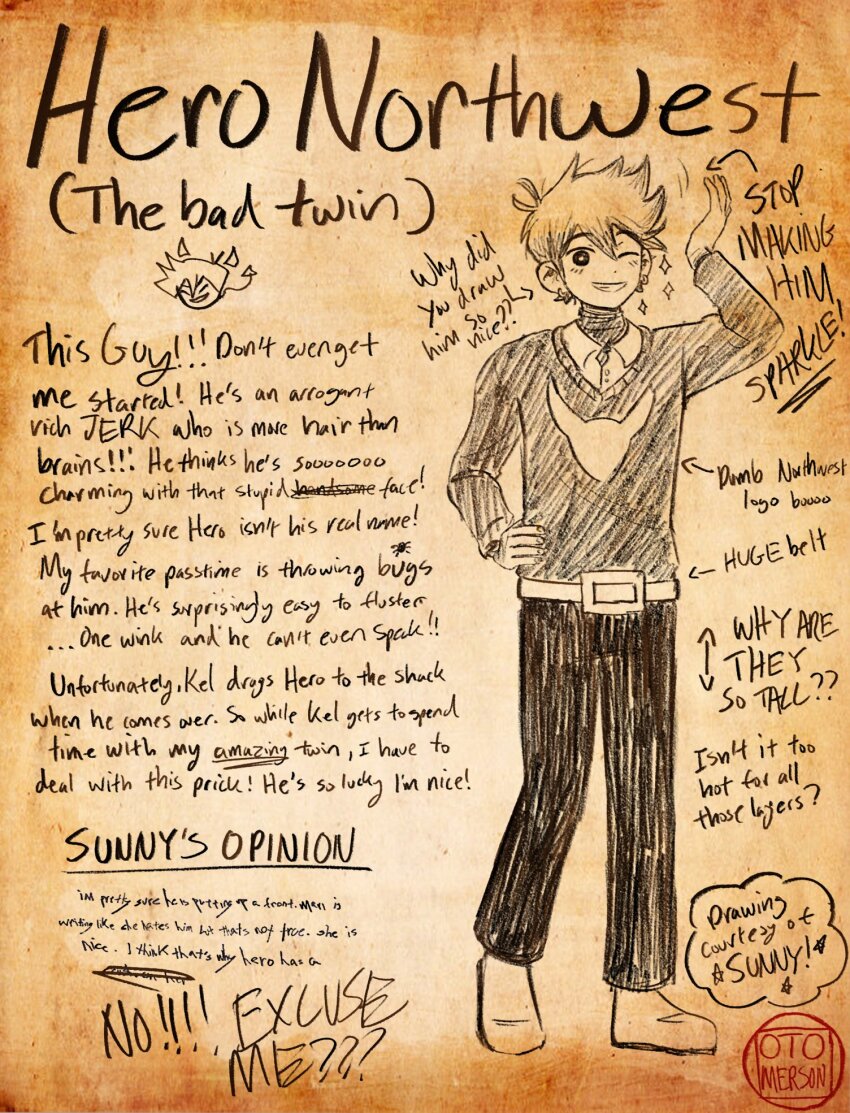 Hero Northwest
(The bad twin)
This Guy!!! Don't even get
me started! He's an arrogant
rich JERK who is more hair than
brains!!! He thinks he's sooooooo
charming with that stupid handsome face!
I'm pretty sure Hero isn't his real name!
My favorite passtime is throwing bugs
at him. He's surprisingly easy to fluster
...One wink and he can't even speak!!
Unfortunately, Kel drags Hero to the shack
when he comes over. So while Kel gets to spend
time with my amazing twin, I have to
deal with this prick! He's so lucky I'm nice!
SUNNY'S OPINION
im pretty sure he is putting up a front. Mari is
writing like she hates him but thats not true. she is
nice. I think that's why hero has a
NO!!!! EXCUSE
ME???
Why did
you draw
him so
nice??
STOP
MAKING
HIM
SPARKLE!
Dumb Northwest
logo boooo
HUGE belt
WHY ARE
THEY
SO TALL??
Isn't it too
hot for all
those layers?
Drawing
courtesy of
SUNNY!
OTO
MERSON